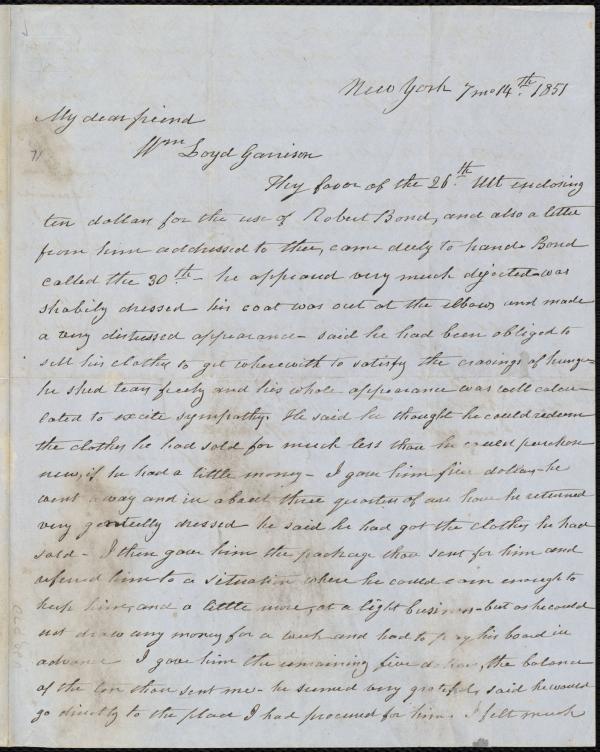 New York 7mo 14th 1851
My dear friend
Wm Loyd Garrison
Thy favor of the 26th Ult enclosing
ten dollars for the use of Robert Bond, and also a letter
from him addressed to thee, came duly to hand. Bond
called the 30th - he appeared very much dejected was
shabily dressed his coat was out at the elbows and made
a very distressed appearance - said he had been obliged to
sell his clothes to get wherewith to satisfy the cravings of hunger
he shed tears freely and his whole appearance was well calcu-
lated to excite sympathy. He said he thought he could redeem
the clothes he had sold for much less than he could purchase
new, if he had a little money - I gave him five dollars - he
went away and in about three quarters of an hour he returned
very genteelly dressed he said he had got the clothes he had
sold - I then gave him the package thou sent for him and
referred him to a situation where he could earn enough to
keep him, and a little more, at a light business - but as he could
not draw any money for a week and had to pay his board in
advance I gave him the remaining five dollars, the balance
of the ten thou sent me - he seemed very grateful, said he would
go directly to the place I had procured for him. I felt much